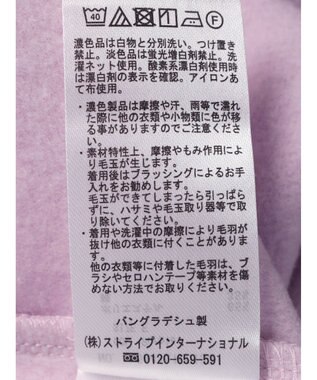 40
濃色品は白物と分別洗い。つけ置き
禁止。淡色品は蛍光増白剤禁止。洗
濯ネット使用。酸素系漂白剤使用時
は漂白剤の表示を確認。アイロンあ
て布使用。
・濃色製品は摩擦や汗、雨等で濡れ
た際に他の衣類や小物類に色が移
る事がありますのでご注意くださ
い。
・素材特性上、摩擦やもみ作用によ
り毛玉が生じます。
着用後はブラッシングによるお手
入れをお勧めします。
毛玉ができてしまったら引っぱら
ずに、ハサミや毛玉取り器等で取
り除いてください。
・着用や洗濯中の摩擦により毛羽が
抜け他の衣類に付くことがありま
す。
他の衣類等に付着した毛羽は、ブ
ラシやセロハンテープ等素材を傷
めない方法でお取りください。
バングラデシュ製
(株)ストライプインターナショナル
0120-659-591